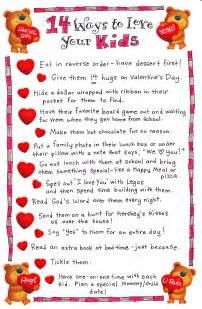 14 Ways to Love
Your Kids
Eat in reverse order - have dessert first!
Give them 14 hugs on Valentine's Day.
Hide a dollar wrapped with ribbon in their
pocket for them to find.
Have their favorite board game out and waiting
for them when they get home from school.
Make them hot chocolate for no reason.
Put a family photo in their lunch box or under
their pillow with a note that says, "We you!"
Go eat lunch with them at school and bring
them something special-like a Happy Meal or
pizza.
Spell out "I love you" with Legos
and then spend time building with them.
Read God's word over them every night.
Send them on a hunt for Hershey's Kisses
all over the house!
Say "Yes" to them for an entire day!
Read an extra book at bedtime - just because.
Tickle them.
Have one-on-one time with each
kid. Plan a special Mommy/child
date!
Hugs